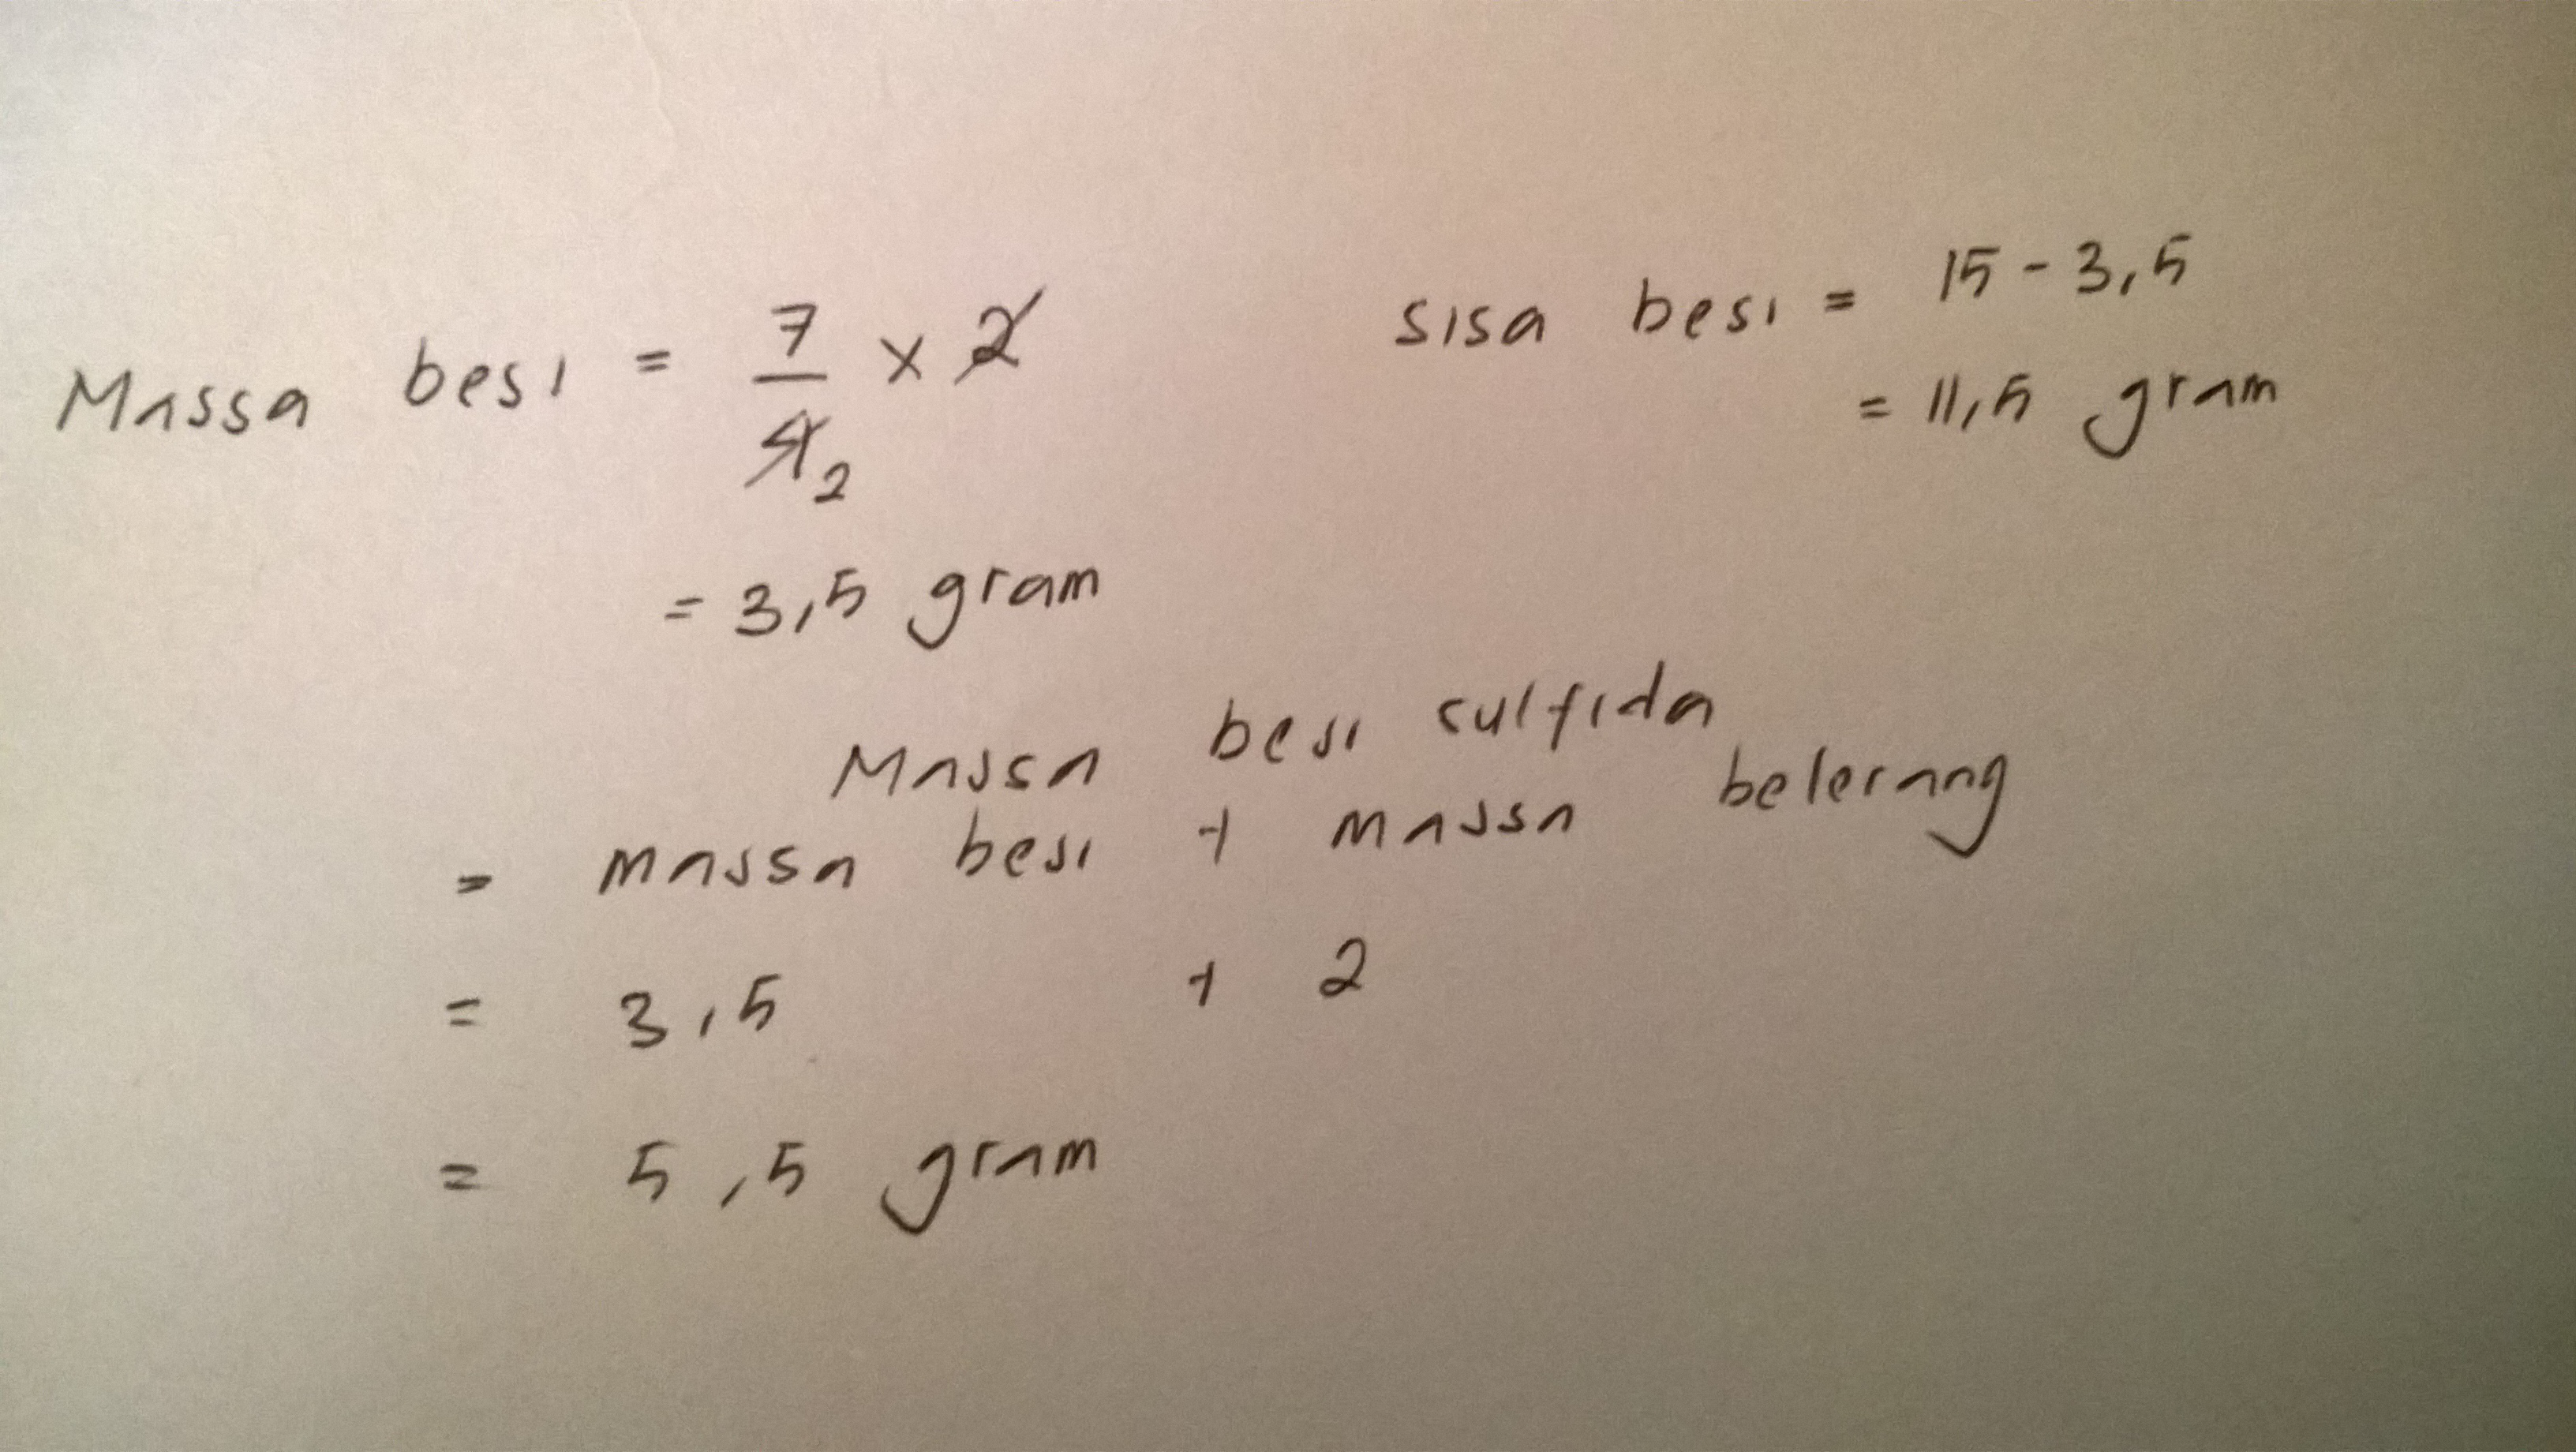 Massa besi = 7/4 2 x 2
= 3,5 gram
sisa besi = 15 - 3,5
= 11,5 gram
Massa besi sulfida
= massa besi + massa belerang
= 3,5 + 2
= 5,5 gram